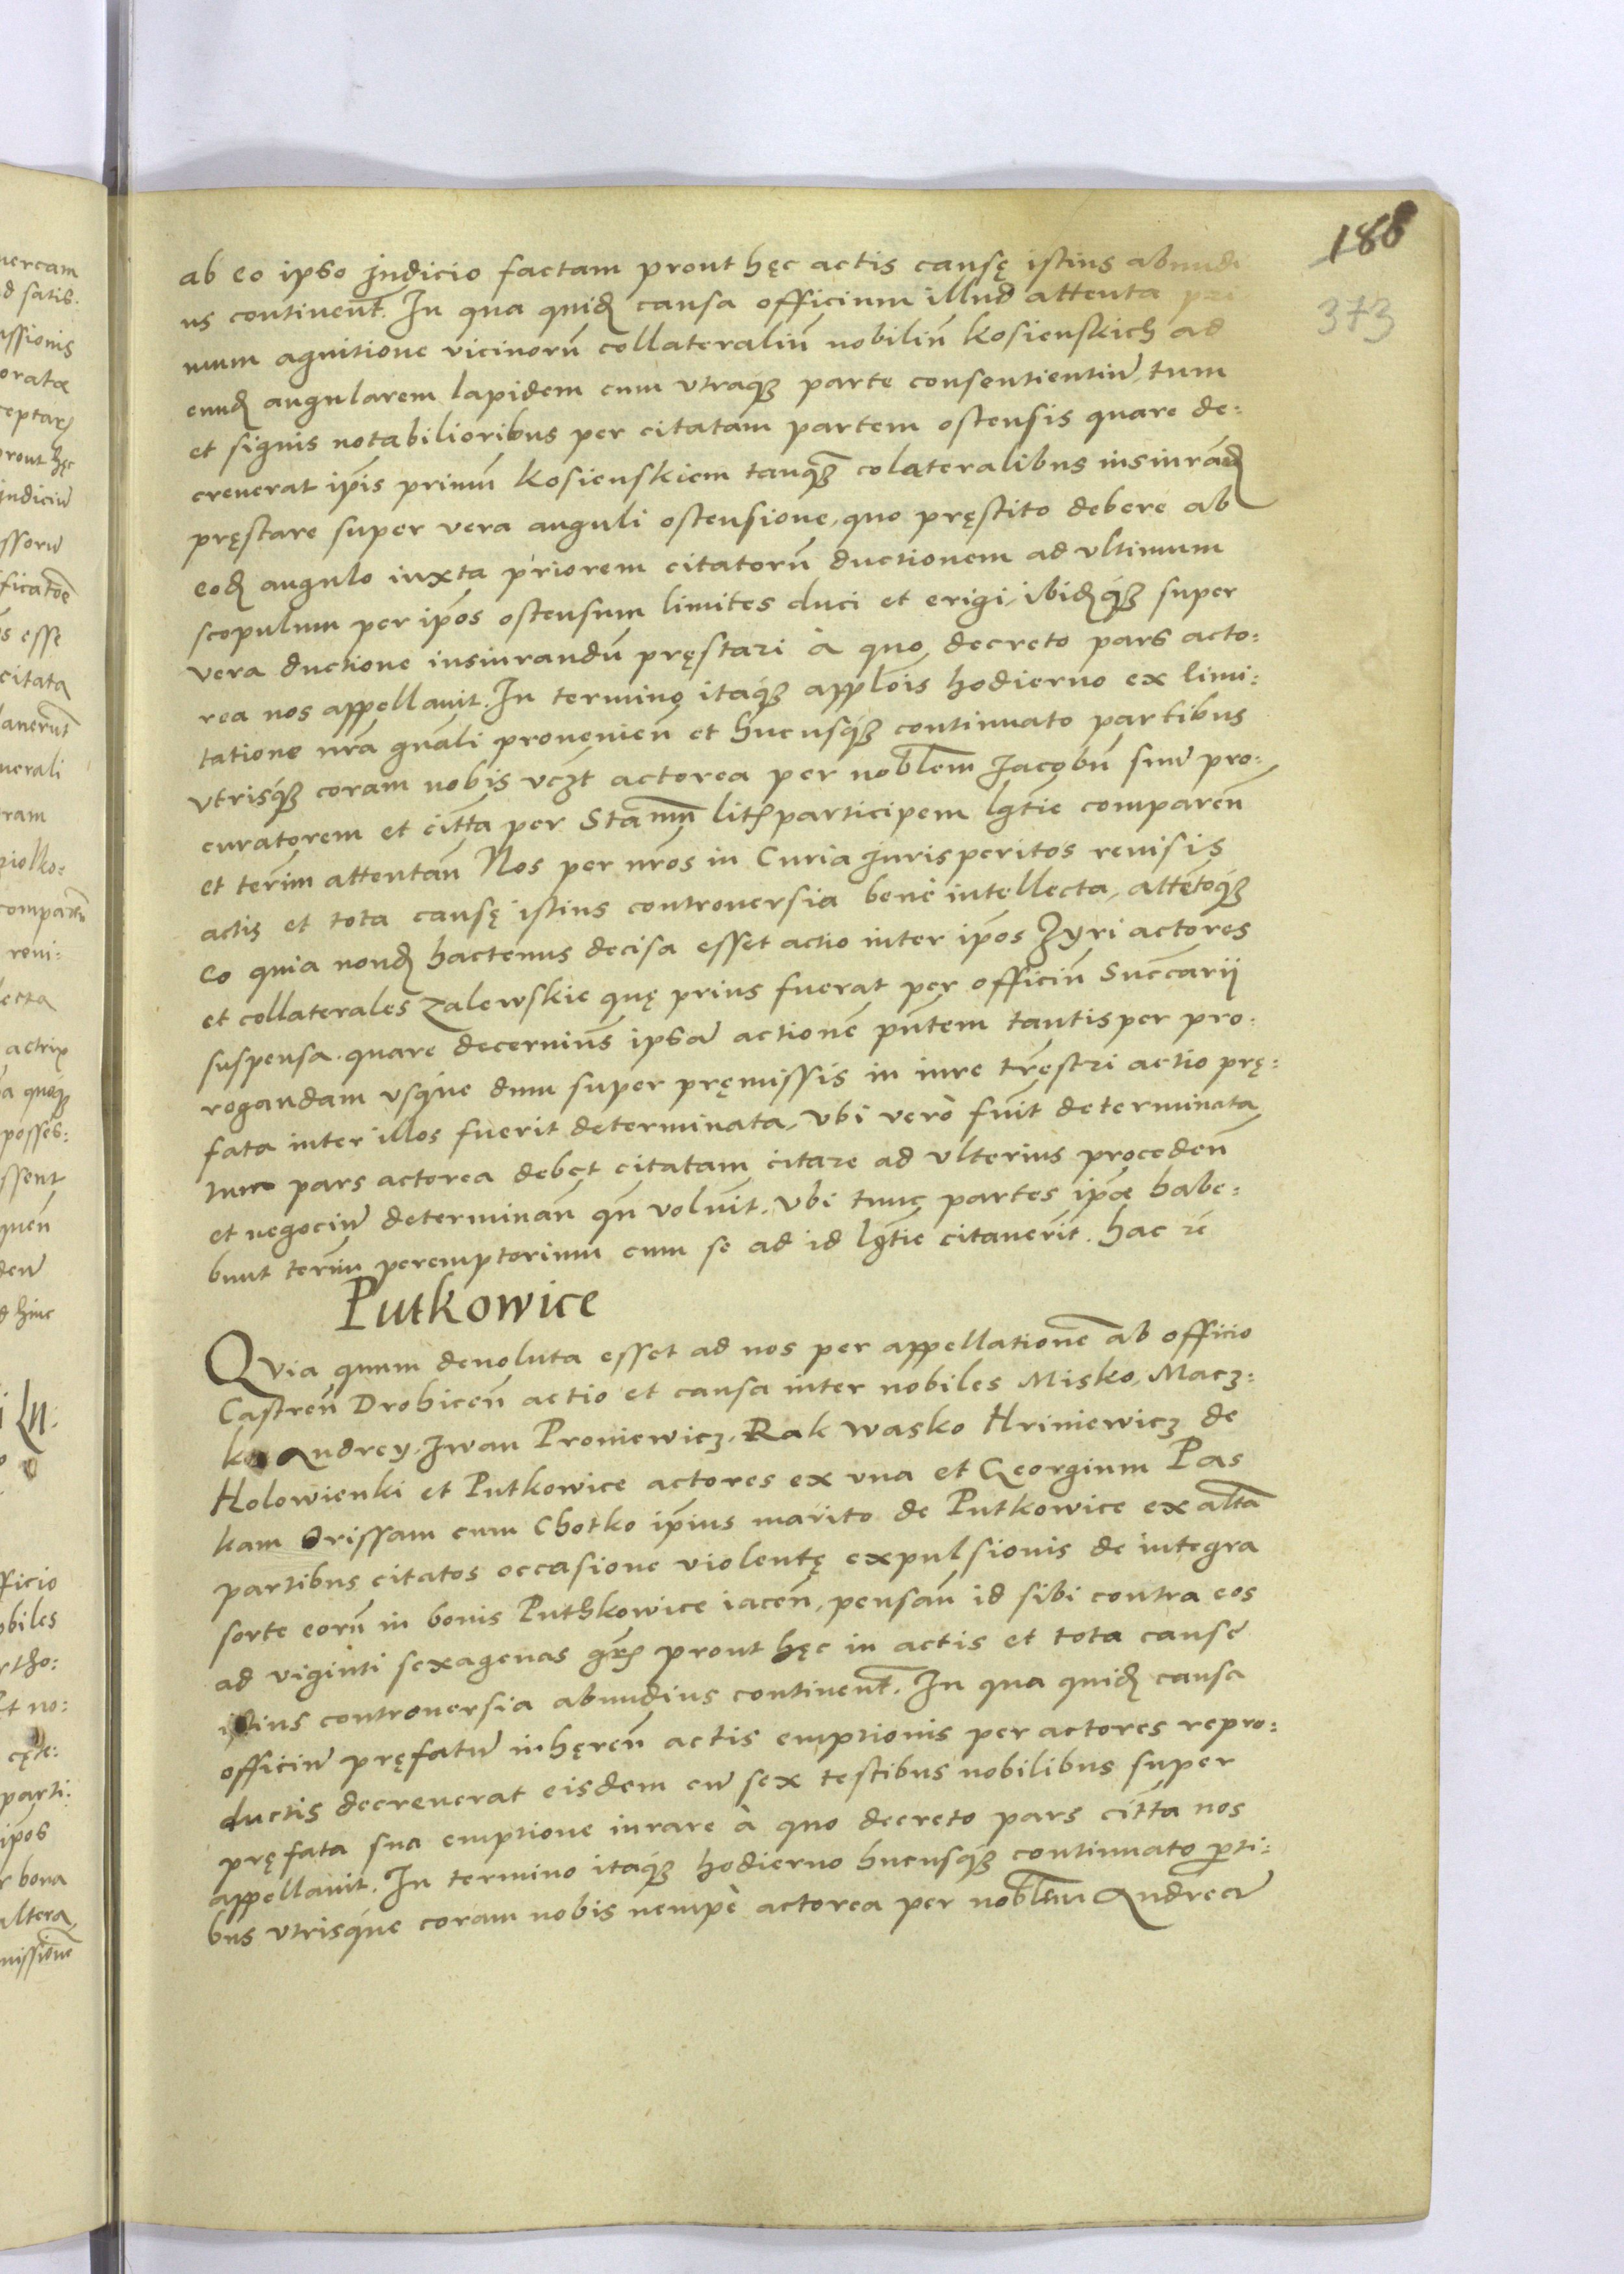 188
373
ab eo ipso Judicio factam prout hęc actis causę istius abundi
us continent̃. In qua quid̃ causa officium illud attenta pri
mum agnitione vicinorũ collateraliũ nobiliũ Kosienskich ad
eund̃ angularem lapidem cum vtraq₃ parte consentientiũ, tum
et signis notabilioribus per citatam partem ostensis quare de:
creuerat ip̃is primũ Kosienskiem tanq̃₃ colateralibus insiurãd̃
pręstare super vera anguli ostensione, quo pręstito debere ab
eod̃ angulo iuxta priorem citatorũ ductionem ad vltimum
scopulum per ip̃os ostensum limites duci et erigi, ibid̃q́₃ super
vera ductione insiurandũ pręstari à quo decreto pars acto:
rea nos appellauit. In termino itaq́₃ appl̃ois hodierno ex limi:
tatione nr̃a gñali prouenieñ et hucusq́₃ continuato partibus
vtrisq́₃ coram nobis vcz̃t actorea per nobl̃em Jacobũ suũ pro:
curatorem et citt̃a per Stam̃ lit̃ participem lg̃tie compareñ
et term̃ attentañ Nos per nr̃os in Curia Jurisperitos reuisis
actis et tota causę istius controuersia benè intellecta, attẽtoq́₃
eo quia nond̃ hactenus decisa esset actio inter ip̃os Zyri actores
et collaterales Zalewskie quę prius fuerat per officiũ Succãrij
suspensa. quare decerniũs ipsã actionẽ pñtem tantisper pro:
rogandam vsq́ue dum super pręmissis in iure tr̃estri actio prę:
fata inter illos fuerit determinata, vbi verò fuit̃ determinata
tunc pars actorea debet citatam citare ad vlterius procedeñ
et negociũ determinañ qñ voluit̃. Vbi tunc partes ip̃æ habe:
bunt term̃ peremptorium cum se ad id lg̃tie citauerit̃. hac rẽ
Putkowice
Quia quum deuoluta esset ad nos per appellationẽ ab officio
Castreñ Drohiceñ actio et causa inter nobiles Misko, Macz:
ko Andrey, Iwan Proniewicz, Rak Wasko Hriniewicz de
Holowienki et Putkowice actores ex vna et Georgium Pas
kam Orissam cum Chotko ip̃ius marito de Putkowice ex alt̃a
partibus citatos occasione violentę expulsionis de integra
sorte eorũ in bonis Puthkowice iaceñ, pensañ id sibi contra eos
ad viginti sexagenas gr̃ prout hęc in actis et tota causę
istius controuersia abundius continent̃. In qua quid̃ causa
officiũ pręfatũ inhęreñ actis emptionis per actores repro:
ductis decreuerat eisdem cũ sex testibus nobilibus super
pręfata sua emptione iurare à quo decreto pars citt̃a nos
appellauit. In termino itaq́₃ hodierno hucusq́₃ continuato p̱ti:
bus vtrisq́ue coram nobis nempè actorea per nobl̃em Andreã